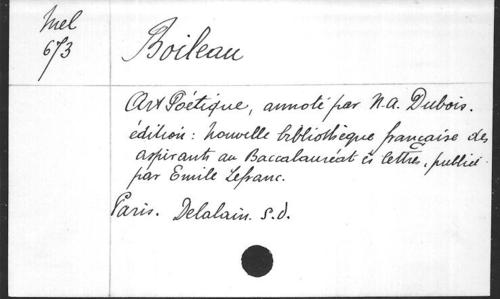 Mel
673
Boileau
Art Poétique, annoté par N.A. Dubois.
édition: nouvelle bibliothèque française des
aspirants au Baccalauréat ès lettres, publiée
par Emile Lefranc.
Paris. Delalain. s.d.